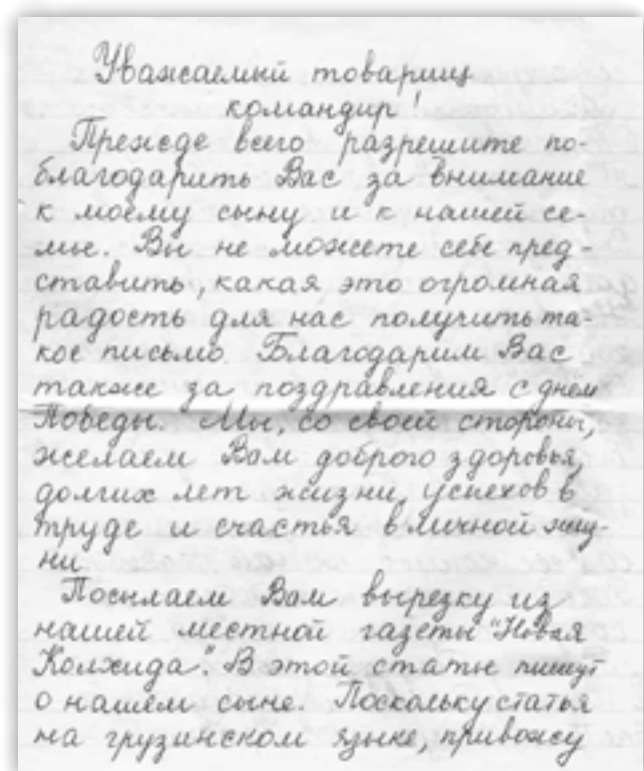 Уважаемый товарищ
командир!
Прежде всего разрешите по-
благодарить Вас за внимание
к моему сыну и к нашей се-
мье. Вы не можете себе пред-
ставить, какая это огромная
радость для нас получить та-
кое письмо. Благодарим Вас
также за поздравления с днём
Победы. Мы, со своей стороны,
желаем Вам доброго здоровья,
долгих лет жизни, успехов в
труде и счастья в личной жиз-
ни.
Посылаем Вам вырезку из
нашей местной газеты "Новая
Колхида". В этой статье пишут
о нашем сыне. Поскольку статья
на грузинском языке, привожу